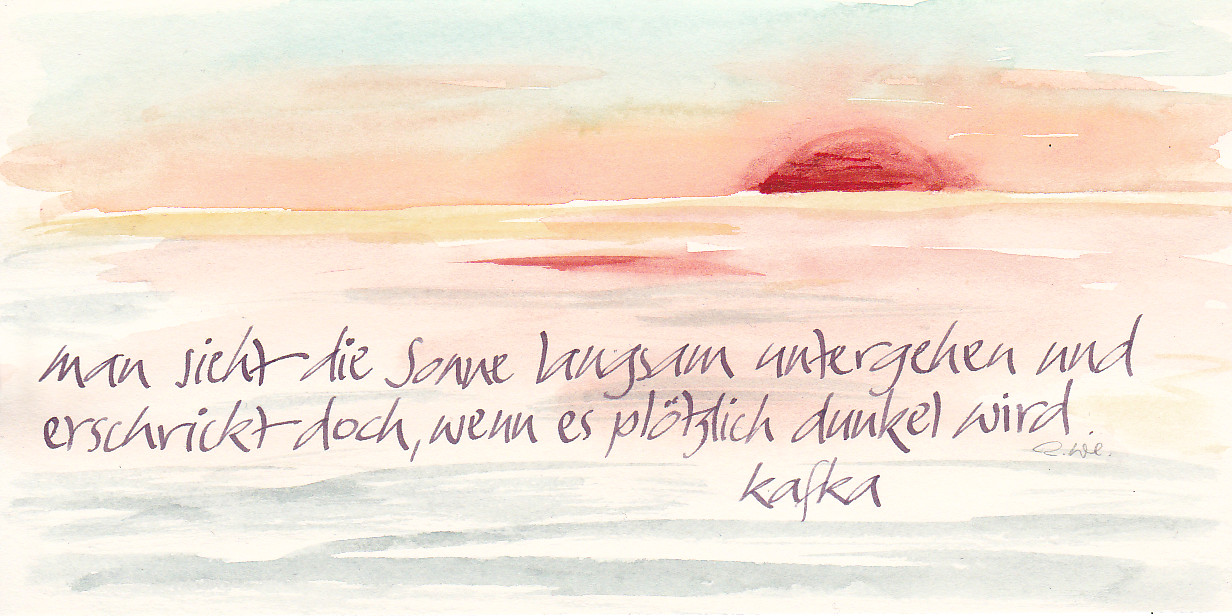 man sieht die Sonne langsam untergehen und
erschrickt doch, wenn es plötzlich dunkel wird.
kafka